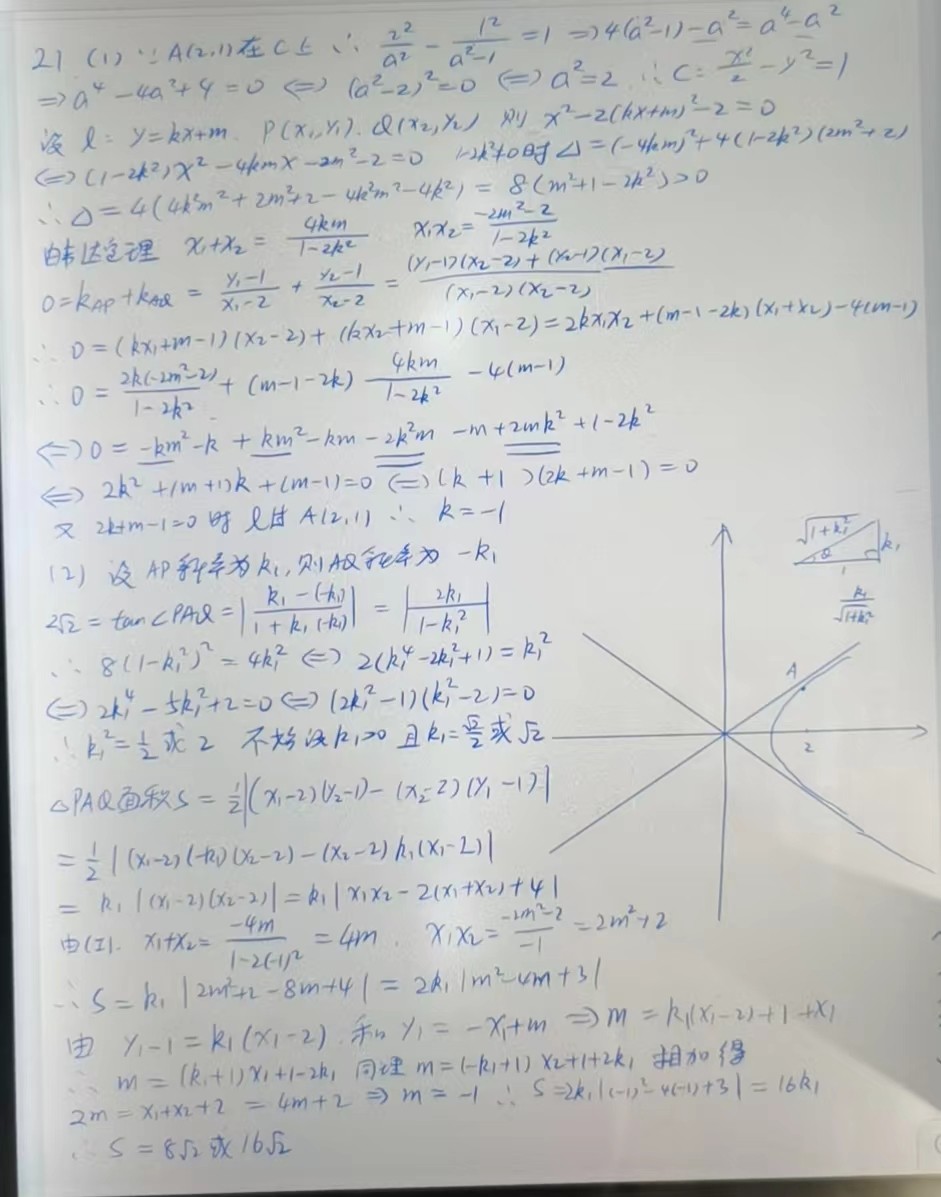 21 (1) ∵ A(2,1)在C上 ∴ 2²/a² - 1²/(a²-1) = 1 ⇒ 4(a²-1) - a² = a⁴ - a²
⇒ a⁴ - 4a² + 4 = 0 ⇔ (a²-2)² = 0 ⇔ a² = 2 ∴ C: x²/2 - y² = 1
设 l: y = kx+m. P(x₁,y₁). Q(x₂,y₂) 则 x² - 2(kx+m)² - 2 = 0
⇔ (1-2k²)x² - 4kmx - 2m² - 2 = 0 1-2k²≠0时 Δ = (-4km)² + 4(1-2k²)(2m²+2)
∴ Δ = 4(4k²m² + 2m² + 2 - 4k²m² - 4k²) = 8(m²+1-2k²) > 0
由韦达定理 x₁+x₂ = 4km/(1-2k²) x₁x₂ = (-2m²-2)/(1-2k²)
0 = k_AP + k_AQ = (y₁-1)/(x₁-2) + (y₂-1)/(x₂-2) = ((y₁-1)(x₂-2) + (y₂-1)(x₁-2))/((x₁-2)(x₂-2))
∴ 0 = (kx₁+m-1)(x₂-2) + (kx₂+m-1)(x₁-2) = 2kx₁x₂ + (m-1-2k)(x₁+x₂) - 4(m-1)
∴ 0 = 2k(-2m²-2)/(1-2k²) + (m-1-2k) 4km/(1-2k²) - 4(m-1)
⇔ 0 = -km² - k + km² - km - 2k²m - m + 2mk² + 1 - 2k²
⇔ 2k² + (m+1)k + (m-1) = 0 ⇔ (k+1)(2k+m-1) = 0
又 2k+m-1=0 时 l过A(2,1) ∴ k = -1
(2) 设AP斜率为k₁, 则AQ斜率为 -k₁
2√2 = tan∠PAQ = |(k₁-(-k₁))/(1+k₁(-k₁))| = |2k₁/(1-k₁²)|
∴ 8(1-k₁²)² = 4k₁² ⇔ 2(k₁⁴-2k₁²+1) = k₁²
⇔ 2k₁⁴ - 5k₁² + 2 = 0 ⇔ (2k₁²-1)(k₁²-2) = 0
∴ k₁² = 1/2 或 2 不妨设k₁>0 且k₁ = √2/2 或 √2
△PAQ面积S = 1/2|(x₁-2)(y₂-1) - (x₂-2)(y₁-1)|
= 1/2|(x₁-2)(-k₁)(x₂-2) - (x₂-2)k₁(x₁-2)|
= k₁|(x₁-2)(x₂-2)| = k₁|x₁x₂ - 2(x₁+x₂) + 4|
由(I). x₁+x₂ = -4m/(1-2(-1)²) = 4m. x₁x₂ = (-2m²-2)/-1 = 2m²+2
∴ S = k₁|2m²+2-8m+4| = 2k₁|m²-4m+3|
由 y₁-1 = k₁(x₁-2). 和 y₁ = -x₁+m ⇒ m = k₁(x₁-2)+1+x₁
∴ m = (k₁+1)x₁+1-2k₁ 同理 m = (-k₁+1)x₂+1+2k₁ 相加得
2m = x₁+x₂+2 = 4m+2 ⇒ m = -1 ∴ S = 2k₁|(-1)²-4(-1)+3| = 16k₁
∴ S = 8√2 或 16√2
√(1+k₁²)
k₁
θ
1
k₁/√(1+k₁²)
A
2